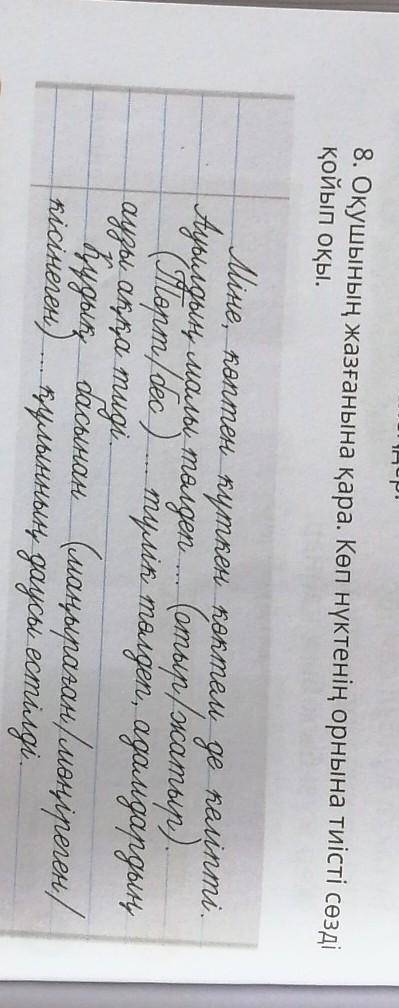 8. Оқушының жазғанына қара. Көп нүктенің орнына тиісті сөзді
қойып оқы.
Міне, көптен күткен көктем де келіпті.
Ауылдың малы төлдеп ... (отыр/жатыр).
(Төрт/бес) ... түлік төлдеп, адамдардың
аузы аққа тиді.
Құдық басынан (маңыраған/мөңіреген/
кісінеген) ... құлынның даусы естілді.